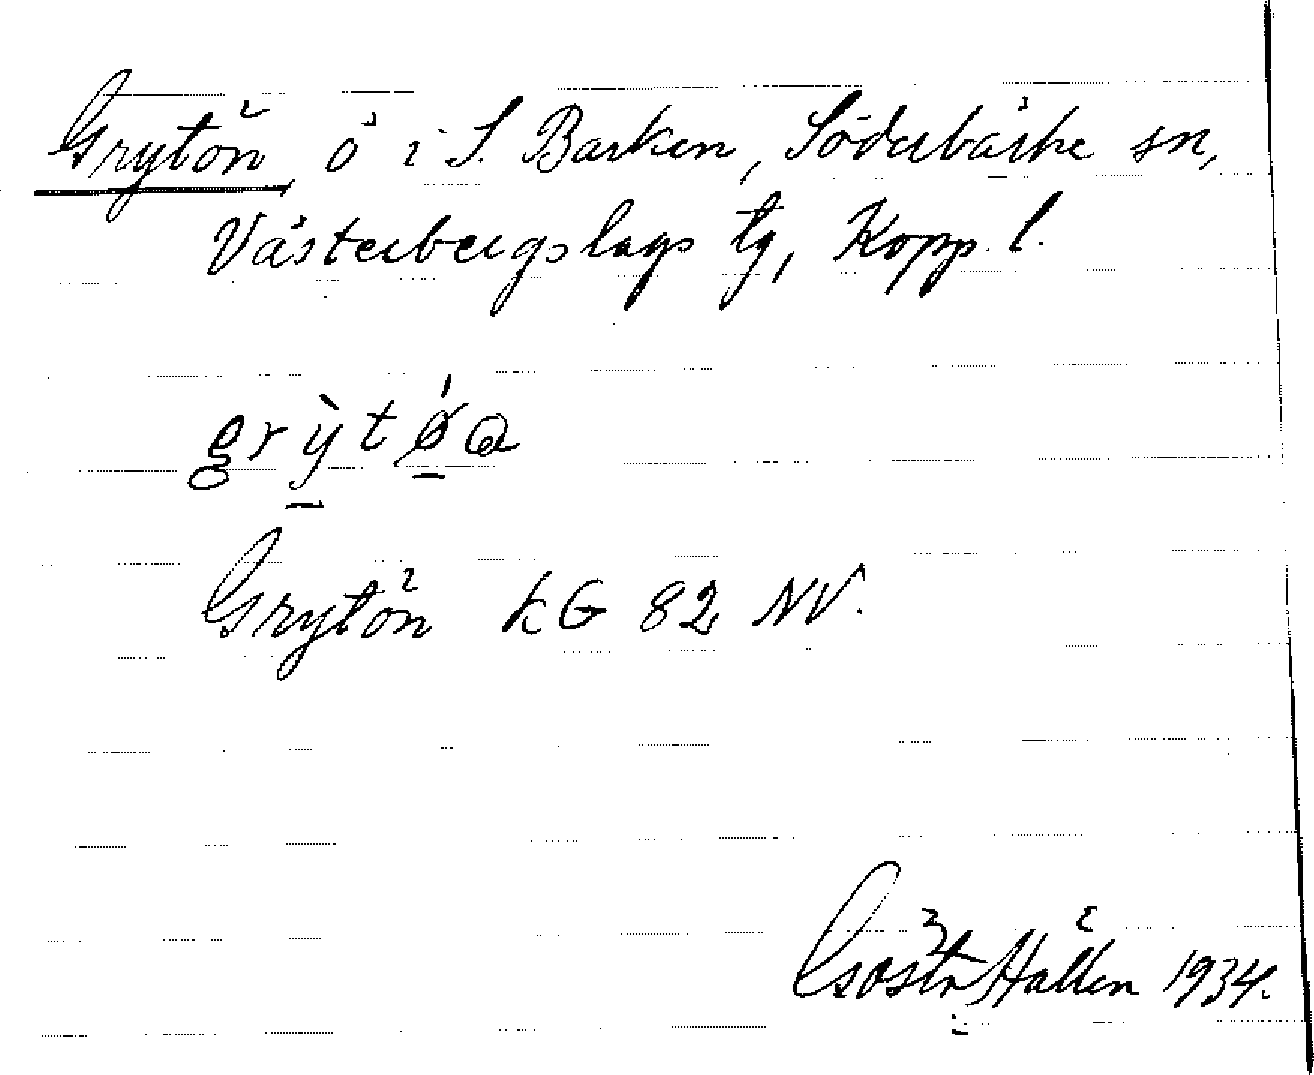 Grytön, ö i S. Barken, Söderbärke sn,
Västerbergslags tg, Kopp. l.
Grytön kG 82 NV.
Gösta Hallén 1934.